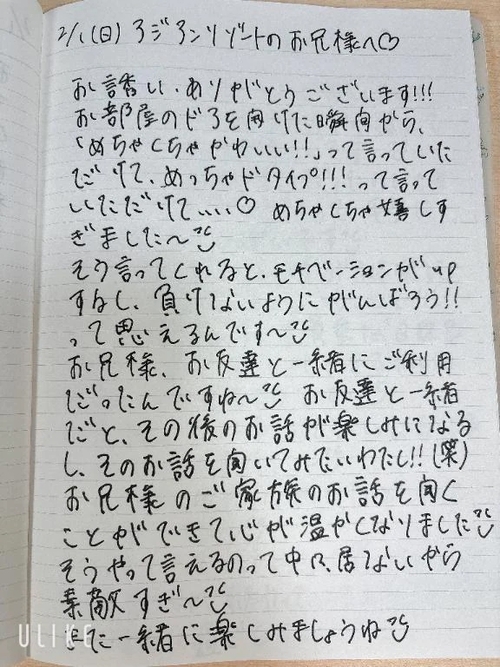 2/1(日) アジアンリゾートのお兄様へ♡
お誘い、ありがとうございます!!!
お部屋のドアを開けた瞬間から、
「めちゃくちゃかわいい!!」って言っていた
だけて、めっちゃドタイプ!!!って言って
いただけて、、、♡ めちゃくちゃ嬉しす
ぎました〜
そう言ってくれると、モチベーションがup
するし、負けないようにがんばろう!!
って思えるんです〜
お兄様、お友達と一緒にご利用
だったんですね〜 お友達と一緒
だと、その後のお話が楽しみになる
し、そのお話を聞いてみたいわたし!!(笑)
お兄様のご家族のお話を聞く
ことができて心が温かくなりました
そうやって言えるのって中々、居ないから
素敵すぎ〜
また一緒に楽しみましょうね
ULIKE